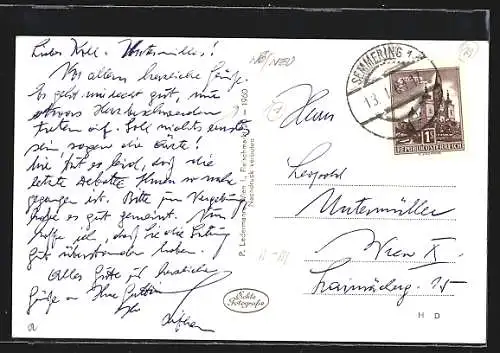 Lieber Koll. Untermüller!
Vor allem herzliche Grüße.
Es geht mir recht gut, nur
etwas Herzbeschwerden
treten auf. Soll nichts ernstes
sein sagen die Ärzte!
Mir tut es leid, daß die
letzte Debatte Ihnen so nahe
gegangen ist. Bitte zur Vergebung
habe es gut gemeint. Nun
hoffe ich, daß Sie die Sitzung
gut überstanden haben.
Alles Gute und herzliche
Grüße an Ihre Gattin
Ihr
P. Ledermann, Wien I., Fleischmarkt
1960
Nachdruck verboten
Echte
Fotografie
SEMMERING 1
REPUBLIK ÖSTERREICH
Herrn
Leopold
Untermüller
Wien X.
15
H D